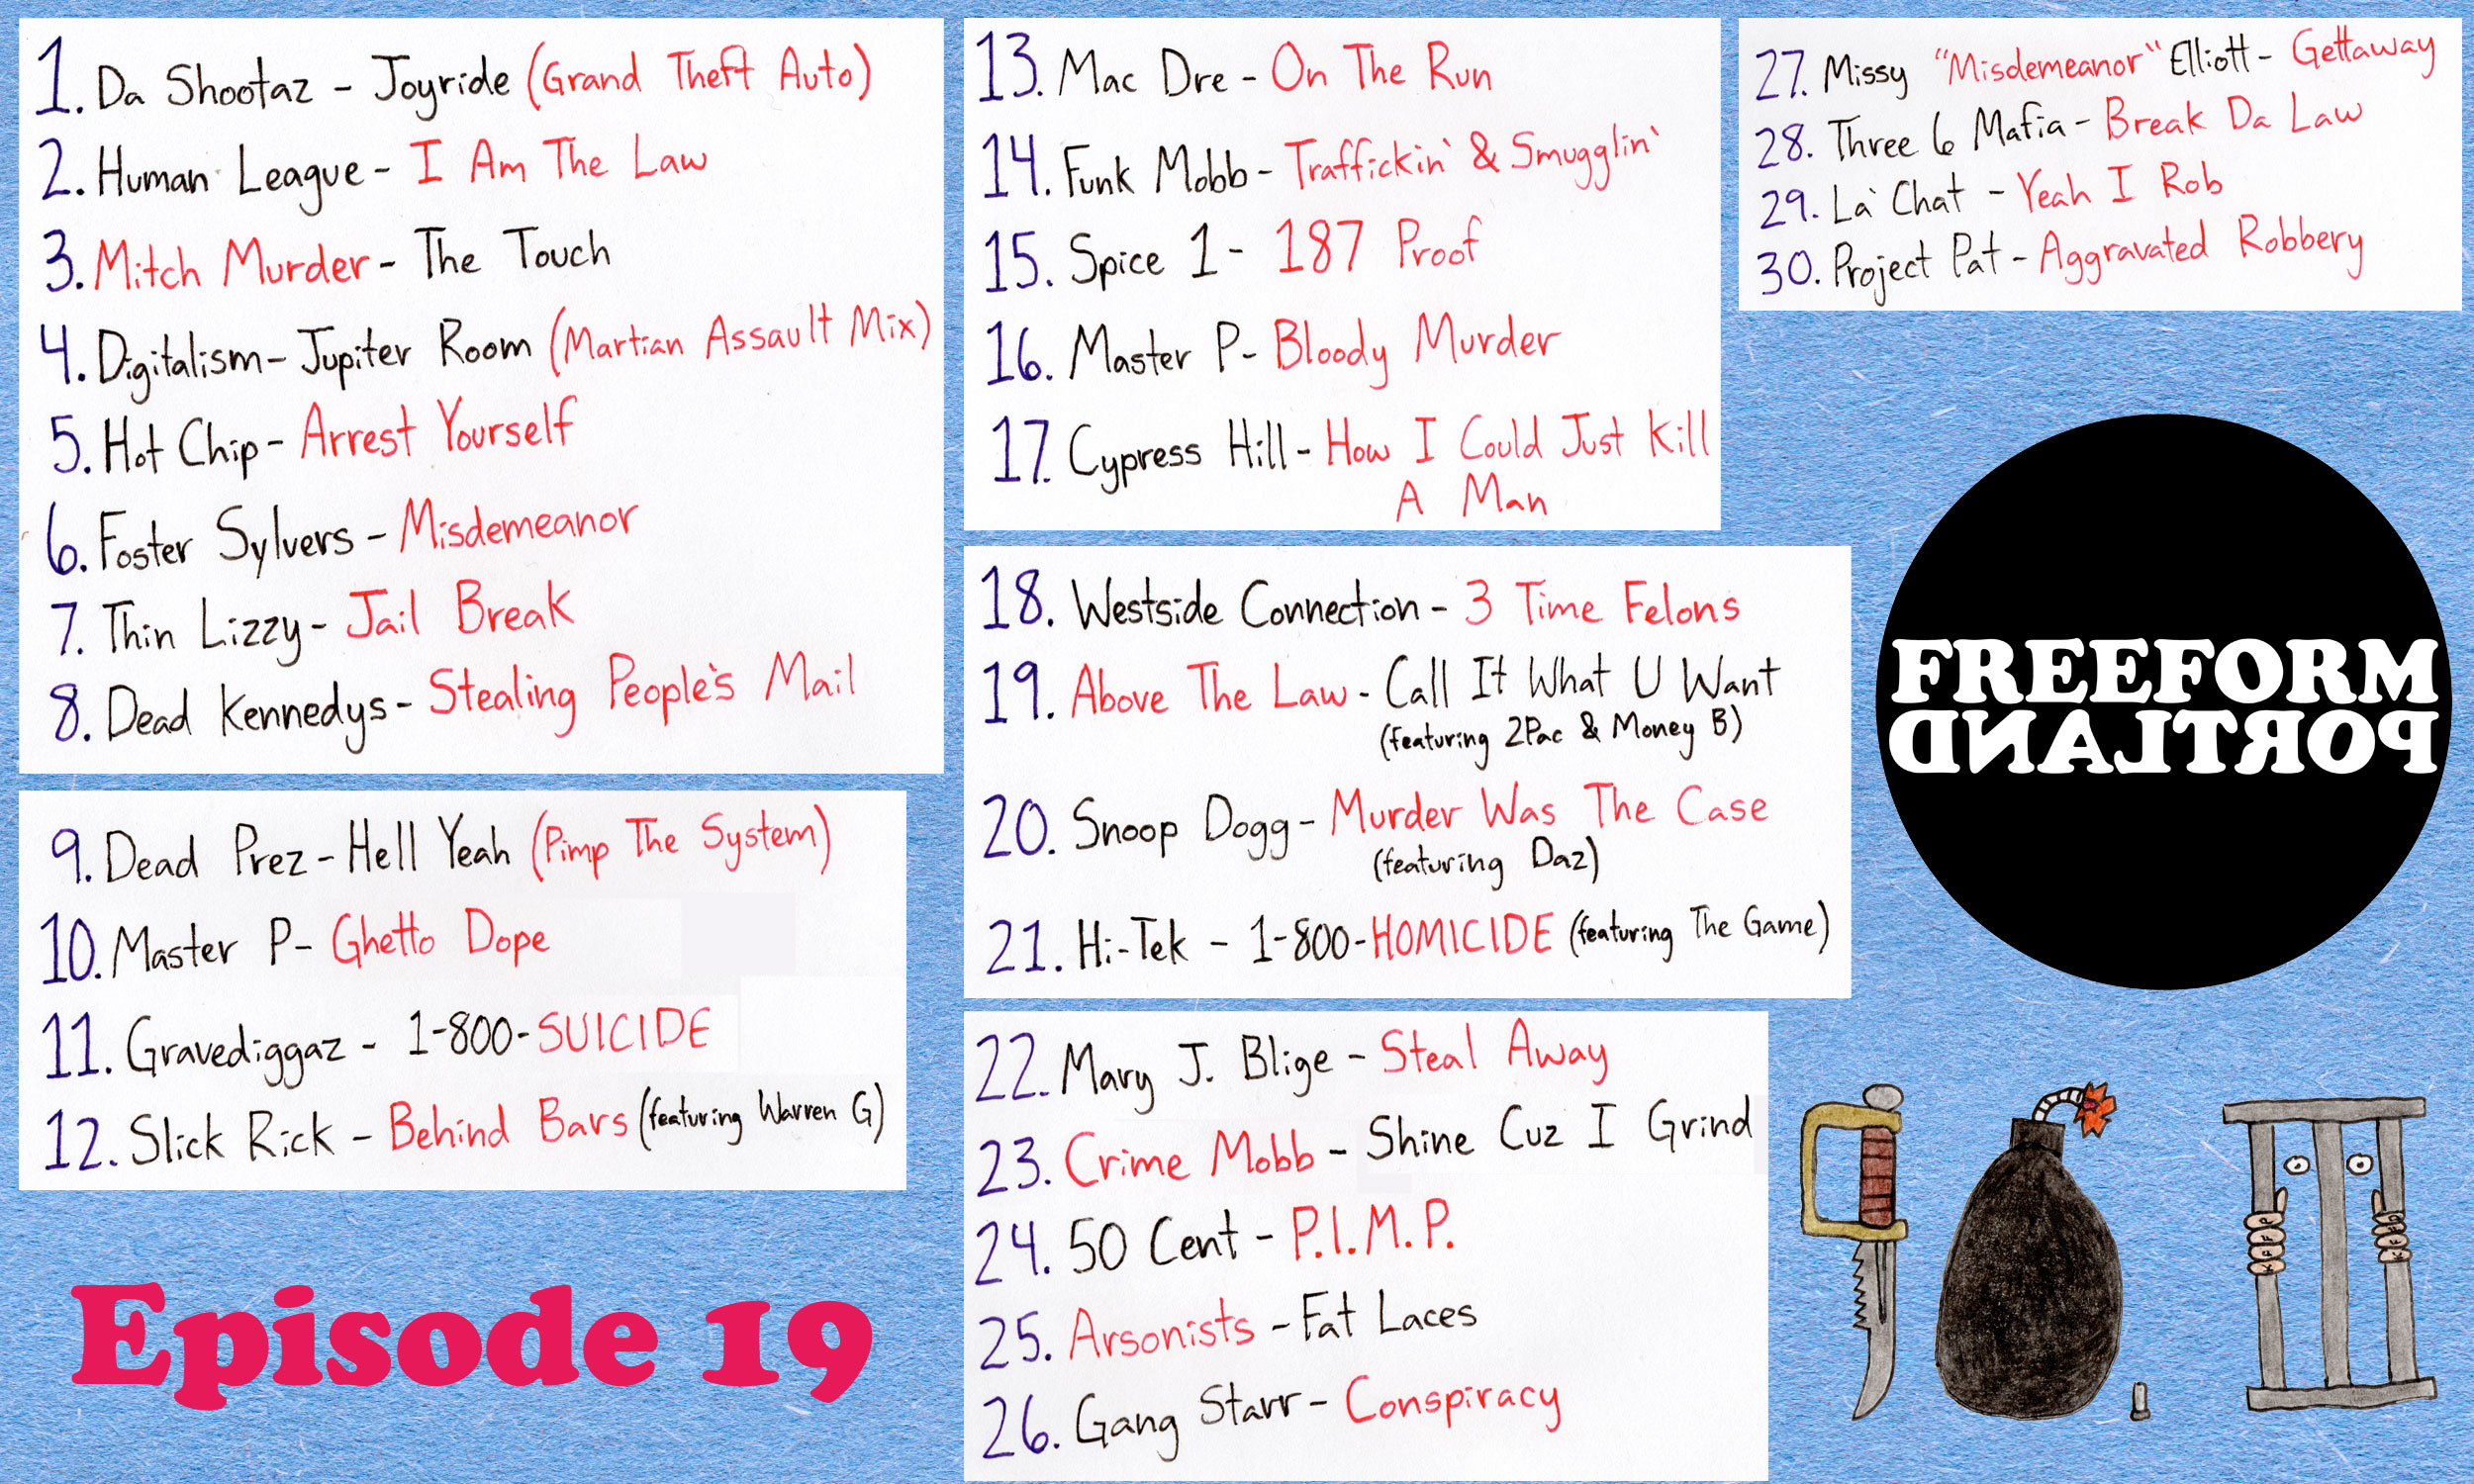 1. Da Shootaz - Joyride (Grand Theft Auto)
2. Human League - I Am The Law
3. Mitch Murder - The Touch
4. Digitalism - Jupiter Room (Martian Assault Mix)
5. Hot Chip - Arrest Yourself
6. Foster Sylvers - Misdemeanor
7. Thin Lizzy - Jail Break
8. Dead Kennedys - Stealing People's Mail
9. Dead Prez - Hell Yeah (Pimp The System)
10. Master P - Ghetto Dope
11. Gravediggaz - 1-800-SUICIDE
12. Slick Rick - Behind Bars (featuring Warren G)
Episode 19
13. Mac Dre - On The Run
14. Funk Mobb - Traffickin' & Smugglin'
15. Spice 1 - 187 Proof
16. Master P - Bloody Murder
17. Cypress Hill - How I Could Just Kill
A Man
18. Westside Connection - 3 Time Felons
19. Above The Law - Call It What U Want
(featuring 2Pac & Money B)
20. Snoop Dogg - Murder Was The Case
(featuring Daz)
21. Hi-Tek - 1-800-HOMICIDE (featuring The Game)
22. Mary J. Blige - Steal Away
23. Crime Mobb - Shine Cuz I Grind
24. 50 Cent - P.I.M.P.
25. Arsonists - Fat Laces
26. Gang Starr - Conspiracy
27. Missy "Misdemeanor" Elliott - Gettaway
28. Three 6 Mafia - Break Da Law
29. La' Chat - Yeah I Rob
30. Project Pat - Aggravated Robbery
FREEFORM
PORTLAND